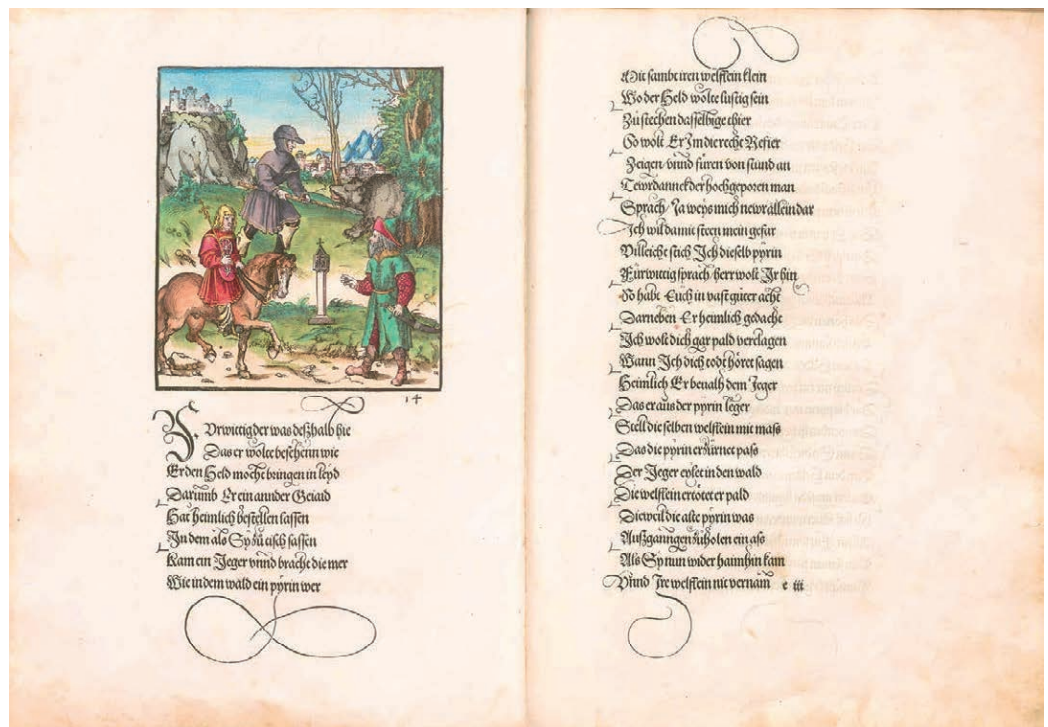 14
Fürwittig der was deßhalb hie
Das er wolte besehenn wie
Er den Held möcht bringen in leyd
Darumb Er ein annder Geiaid
Hat heimlich bestellen lassen
In dem als Sy zů tisch sassen
Kam ein Jeger vnnd bracht die mer
Wie in dem wald ein pyrin wer
Mit sambt iren welfflein klein
Wo der Held wolte lustig sein
Zů stechen dasselbige thier
So wolt Er Im die rechte Refier
Zeigen vnnd füren von stund an
Tewrdannck der hochgeporen man
Sprach Ja weys mich newr allein dar
Ich wil damit steen mein gefar
Villeicht stich Ich dieselb pyrin
Fürwittig sprach herr wolt Ir hin
So habt Euch in vast güter acht
Darneben Er heimlich gedacht
Ich wolt dich gar pald verclagen
Wann Ich dich todt höret sagen
Heimlich Er benalh dem Jeger
Das er aus der pyrin leger
Stell die selben welfflein mit mass
Das die pyrin erzürnet pass
Der Jeger eylet in den wald
Die welfflein ertötet er pald
Dieweil die alte pyrin was
Außgangen zůholen ein ass
Als Sy nun wider haim hin kam
Vnnd Ire welfflein nit vernam e iii